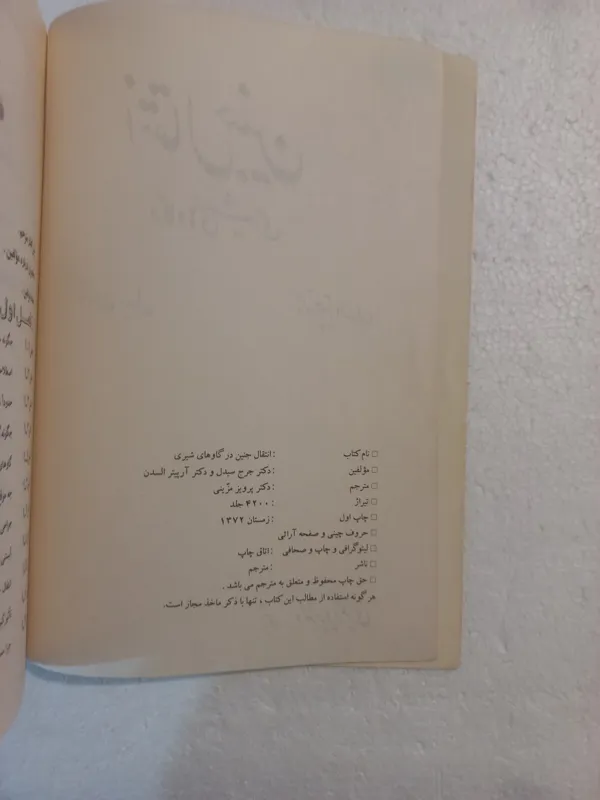 □ نام کتاب : انتقال جنین در گاوهای شیری
□ مؤلفین : دکتر جرج سیدل و دکتر آرپیتر السدن
□ مترجم : دکتر پرویز مزّینی
□ تیراژ : ۴۲۰۰ جلد
□ چاپ اول : زمستان ۱۳۷۲
□ حروف چینی و صفحه آرائی
□ لیتوگرافی و چاپ و صحافی : اتاق چاپ
□ ناشر : مترجم
□ حق چاپ محفوظ و متعلق به مترجم می باشد .
هر گونه استفاده از مطالب این کتاب ، تنها با ذکر ماخذ مجاز است.